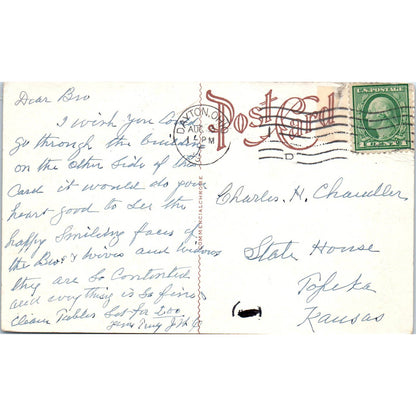 Dear Bro
I wish you could
go through the building
on the other side of this
Card it would do your
heart good to see the
happy Smileing faces of
the Bros & wives and widows
they are So Contented
and everything is So fine
Clean Tables Set for 200
Yours Truly J.H.
Post Card
DAYTON, OHIO
AUG
PM
U.S. POSTAGE
1 CENT 1
COMMERCIALCHROME
Charles. H. Chandler
State House
Topeka
Kansas